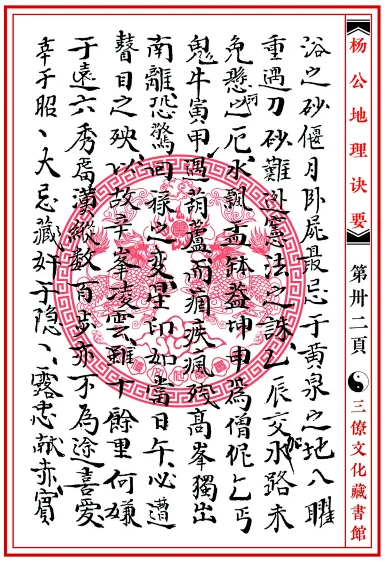 杨公地理诀要 第卅二頁 三僚文化藏書館
浴之砂偃月卧屍最忌于黄泉之地八曜
重遇刀砂難逃憲法之誅乙辰交加水路未
免懸河之厄水飄盂鉢益坤申為僧伲乞丐
鬼牛寅甲遇葫蘆而痼疾瘋殘高峯獨出
南離恐驚回禄之变星印如當日午必遭
瞽目之殃以故辛峯凌雲雖十餘里何嫌
于遠六秀為漢縱数百步亦不為途喜愛
幸于昭丶大忌藏奸于隐丶露忠献赤賓